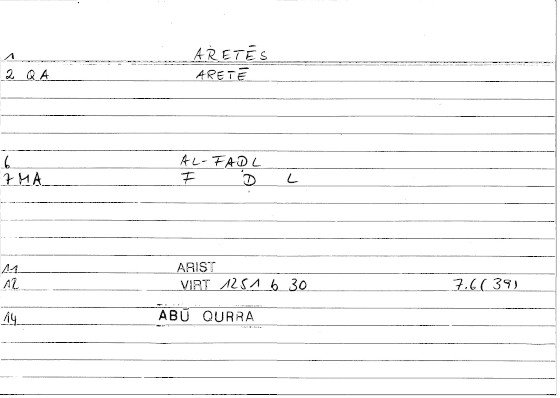 1 ARETĒS
2 QA ARETĒ
6 AL-FAḌL
7 MA F Ḍ L
11 ARIST
12 VIRT 1251 b 30 7.6(39)
14 ABŪ QURRA